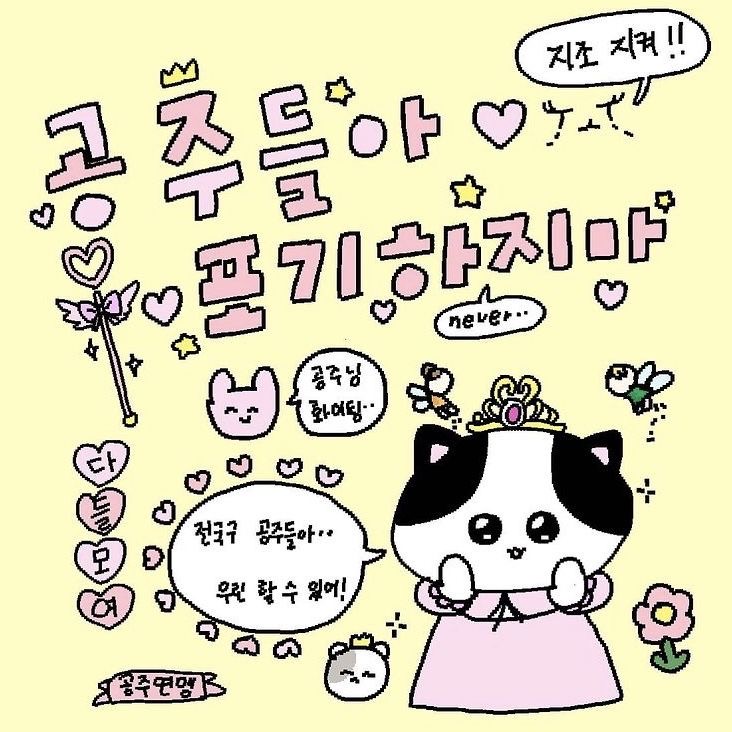 지조 지켜!!
공주들아
포기하지마
never..
공주님
화이팅..
전국구 공주들아..
우린 할 수 있어!
다
들
모
여
공주연맹